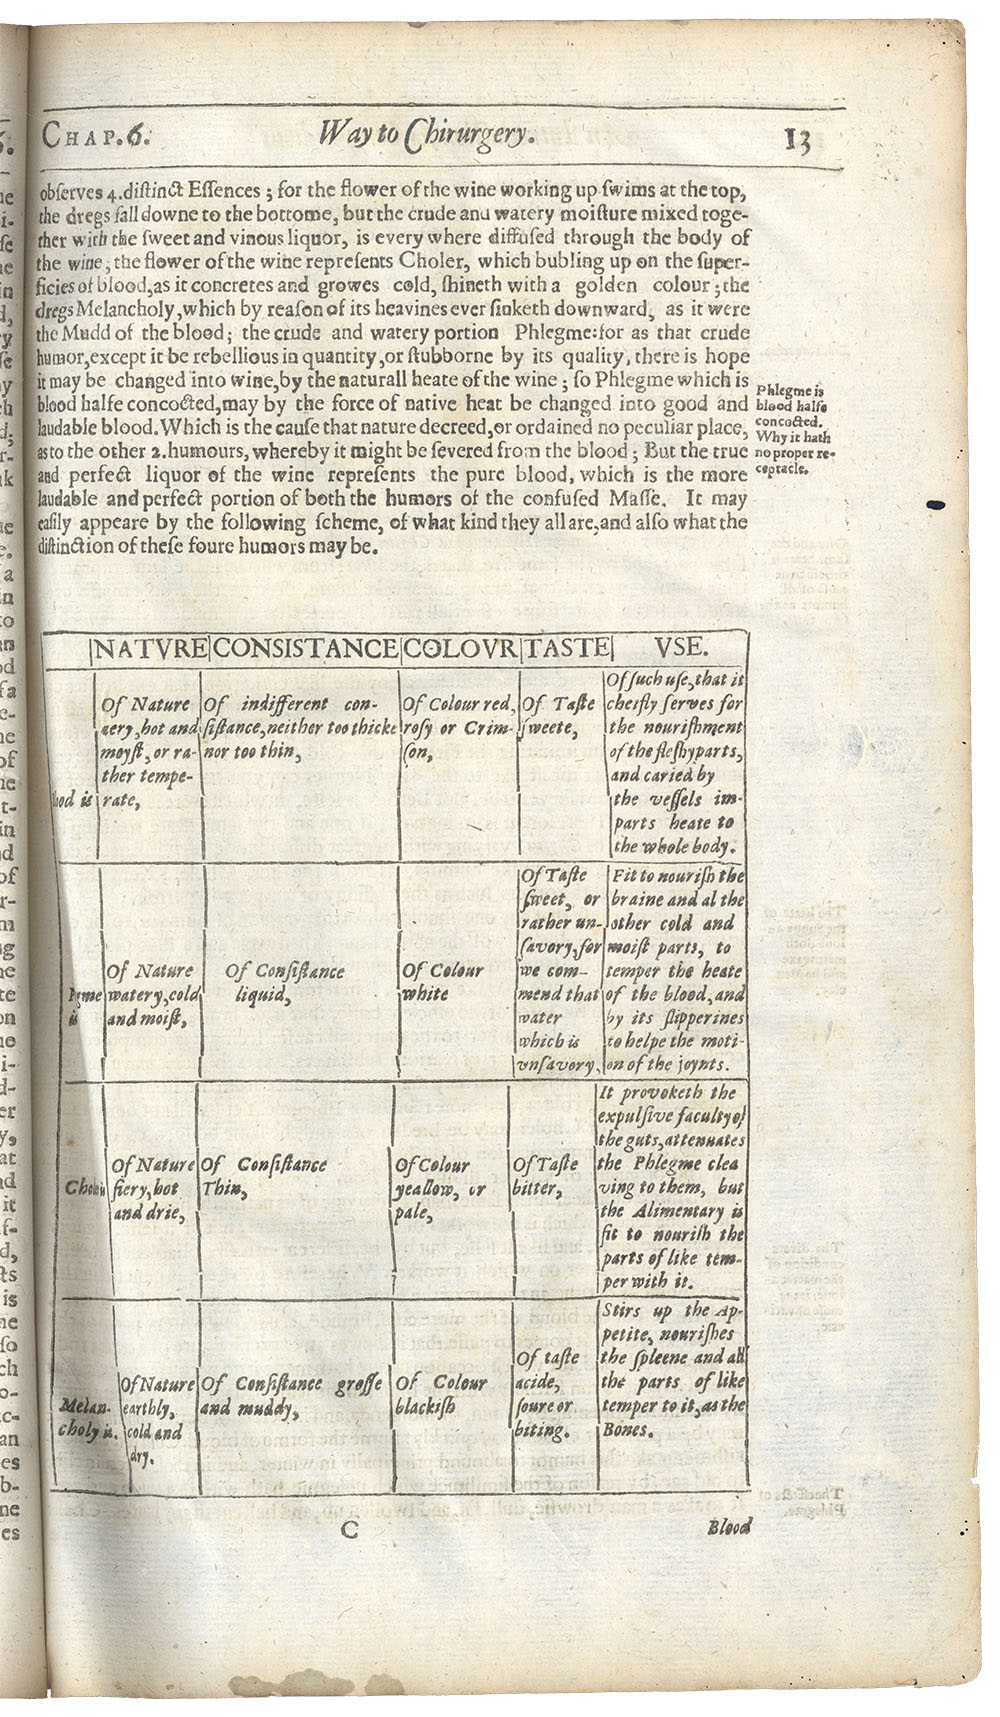 CHAP. 6. Way to Chirurgery. 13
obſerves 4. diſtinct Eſſences; for the flower of the wine working up ſwims at the top,
the dregs fall downe to the bottome, but the crude and watery moiſture mixed toge-
ther with the ſweet and vinous liquor, is every where diffuſed through the body of
the wine, the flower of the wine repreſents Choler, which bubling up on the ſuper-
ficies of blood, as it concretes and growes cold, ſhineth with a golden colour; the
dregs Melancholy, which by reaſon of its heavines ever ſinketh downward, as it were
the Mudd of the blood; the crude and watery portion Phlegme: for as that crude
humor, except it be rebellious in quantity, or ſtubborne by its quality, there is hope
it may be changed into wine, by the naturall heate of the wine; ſo Phlegme which is
blood halfe concocted, may by the force of native heat be changed into good and
laudable blood. Which is the cauſe that nature decreed, or ordained no peculiar place,
as to the other 2. humours, whereby it might be ſevered from the blood; But the true
and perfect liquor of the wine repreſents the pure blood, which is the more
laudable and perfect portion of both the humors of the confuſed Maſſe. It may
eaſily appeare by the following ſcheme, of what kind they all are, and alſo what the
diſtinction of theſe foure humors may be.
Phlegme is
blood halfe
concocted.
Why it hath
no proper re-
ceptacle.
NATVRE CONSISTANCE COLOVR TASTE VSE.
ood is
Of Nature
aery, hot and
moyſt, or ra-
ther tempe-
rate,
Of indifferent con-
ſiſtance, neither too thicke
nor too thin,
Of Colour red,
roſy or Crim-
ſon,
Of Taſte
ſweete,
Of ſuch uſe, that it
cheifly ſerves for
the nouriſhment
of the fleſhy parts,
and caried by
the veſſels im-
parts heate to
the whole body.
gme
is
Of Nature
watery, cold
and moiſt,
Of Conſiſtance
liquid,
Of Colour
white
Of Taſte
ſweet, or
rather un-
ſavory, for
we com-
mend that
water
which is
unſavory,
Fit to nouriſh the
braine and al the
other cold and
moiſt parts, to
temper the heate
of the blood, and
by its ſlipperines
to helpe the moti-
on of the joynts.
Of Nature
fiery, hot
and drie,
Of Conſiſtance
Thin,
Of Colour
yeallow, or
pale,
Of Taſte
bitter,
It provoketh the
expulſive faculty of
the guts, attenuates
the Phlegme clea
ving to them, but
the Alimentary is
fit to nouriſh the
parts of like tem-
per with it.
Melan-
choly is.
Of Nature
earthly,
cold and
dry.
Of Conſiſtance groſſe
and muddy,
Of Colour
blackiſh
Of taſte
acide,
ſoure or
biting.
Stirs up the Ap-
petite, nouriſhes
the ſpleene and all
the parts of like
temper to it, as the
Bones.
C Blood